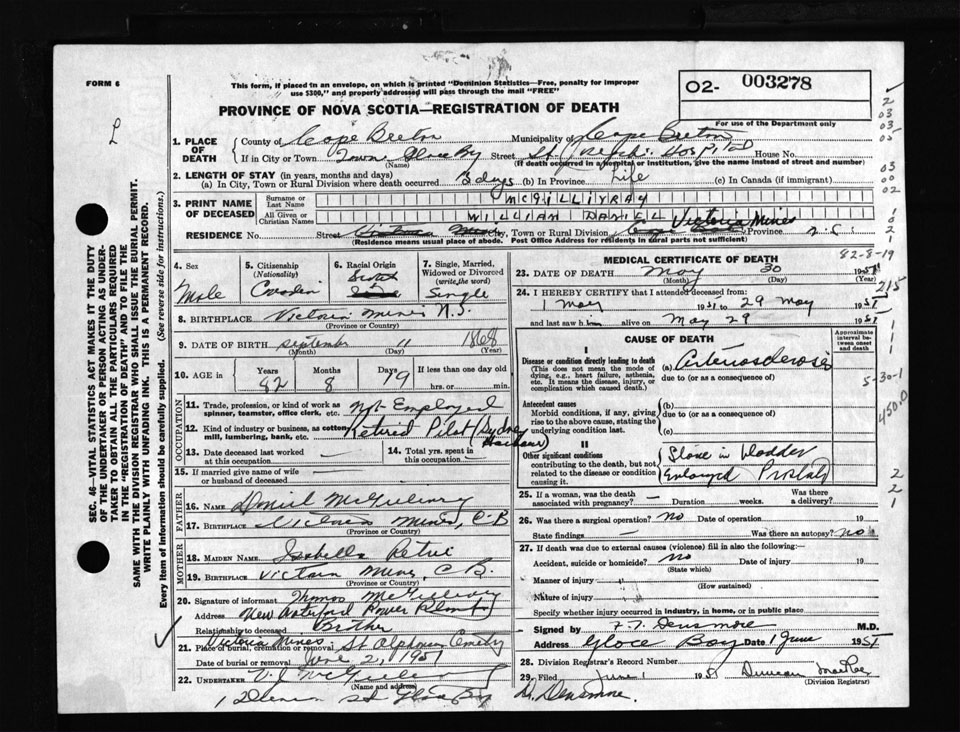 FORM 6
This form, if placed in an envelope, on which is printed "Dominion Statistics—Free, penalty for improper
use $300," and properly addressed will pass through the mail "FREE"
02- 003278
For use of the Department only
PROVINCE OF NOVA SCOTIA—REGISTRATION OF DEATH
1. PLACE OF DEATH
County of Cape Breton Municipality of Cape Breton
If in City or Town Town Glace Bay Street St. Joseph's Hospital House No.
(Name) (If death occurred in a hospital or institution, give the name instead of street and number)
2. LENGTH OF STAY (in years, months and days)
(a) In City, Town or Rural Division where death occurred 3 days (b) In Province Life (c) In Canada (if immigrant)
3. PRINT NAME OF DECEASED
Surname or Last Name McGILLIVRAY
All Given or Christian Names WILLIAM DANIEL
RESIDENCE No. Street Victoria Mines City, Town or Rural Division Victoria Mines Province N.S.
(Residence means usual place of abode. Post Office Address for residents in rural parts not sufficient)
4. Sex Male
5. Citizenship (Nationality) Canadian
6. Racial Origin Scotch
7. Single, Married, Widowed or Divorced (write the word) Single
8. BIRTHPLACE Victoria Mines N.S.
(Province or Country)
9. DATE OF BIRTH September 11 1868
(Month) (Day) (Year)
10. AGE Years 82 Months 8 Days 19 If less than one day old
hrs. or min.
OCCUPATION
11. Trade, profession, or kind of work as spinner, teamster, office clerk, etc. Not Employed
12. Kind of industry or business, as cotton mill, lumbering, bank, etc. Retired Pilot (Sydney Harbour)
13. Date deceased last worked at this occupation —
14. Total yrs. spent in this occupation
15. If married give name of wife or husband of deceased —
FATHER
16. NAME Daniel McGillivray
17. BIRTHPLACE Victoria Mines, C.B
(Province or Country)
MOTHER
18. MAIDEN NAME Isabella Petrie
19. BIRTHPLACE Victoria Mines, C.B.
(Province or Country)
20. Signature of informant Thomas McGillivray
Address New Waterford Power Plant
Relationship to deceased Brother
Victoria Mines
21. Place of burial, cremation or removal St Alphonsus Cemetery
Date of burial or removal June 2, 1951
22. UNDERTAKER V.J. McGillivray
(Name and address)
Glace Bay
MEDICAL CERTIFICATE OF DEATH
82-8-19
23. DATE OF DEATH May 30 1951
(Month) (Day) (Year)
24. I HEREBY CERTIFY that I attended deceased from:
1 May 1951 to 29 May 1951
and last saw him alive on May 29 1951
CAUSE OF DEATH
Approximate interval between onset and death
I
Disease or condition directly leading to death
(This does not mean the mode of dying, e.g., heart failure, asthenia, etc. It means the disease, injury, or complication which caused death.)
(a) Arteriosclerosis
due to (or as a consequence of)
5-30-1
4500
Antecedent causes
Morbid conditions, if any, giving rise to the above cause, stating the underlying condition last.
(b)
due to (or as a consequence of)
(c)
II
Other significant conditions contributing to the death, but not related to the disease or condition causing it.
Stone in bladder
Enlarged Prostate
25. If a woman, was the death associated with pregnancy? — Duration weeks. Was there a delivery?
26. Was there a surgical operation? no Date of operation 19
State findings — Was there an autopsy? no
27. If death was due to external causes (violence) fill in also the following:—
Accident, suicide or homicide? no Date of injury 19
(State which)
Manner of injury
(How sustained)
Nature of injury
Specify whether injury occurred in industry, in home, or in public place
Signed by F.T. Densmore M.D.
Address Glace Bay Date 1 June 1951
28. Division Registrar's Record Number
29. Filed June 1 1951 Duncan MacRae
(Division Registrar)
Dr. Densmore
SEC. 46—VITAL STATISTICS ACT MAKES IT THE DUTY
OF THE UNDERTAKER OR PERSON ACTING AS UNDER-
TAKER TO OBTAIN ALL THE PARTICULARS REQUIRED
IN THE "REGISTRATION OF DEATH" AND TO FILE THE
SAME WITH THE DIVISION REGISTRAR WHO SHALL ISSUE THE BURIAL PERMIT.
WRITE PLAINLY WITH UNFADING INK. THIS IS A PERMANENT RECORD.
Every item of information should be carefully supplied. (See reverse side for instructions.)